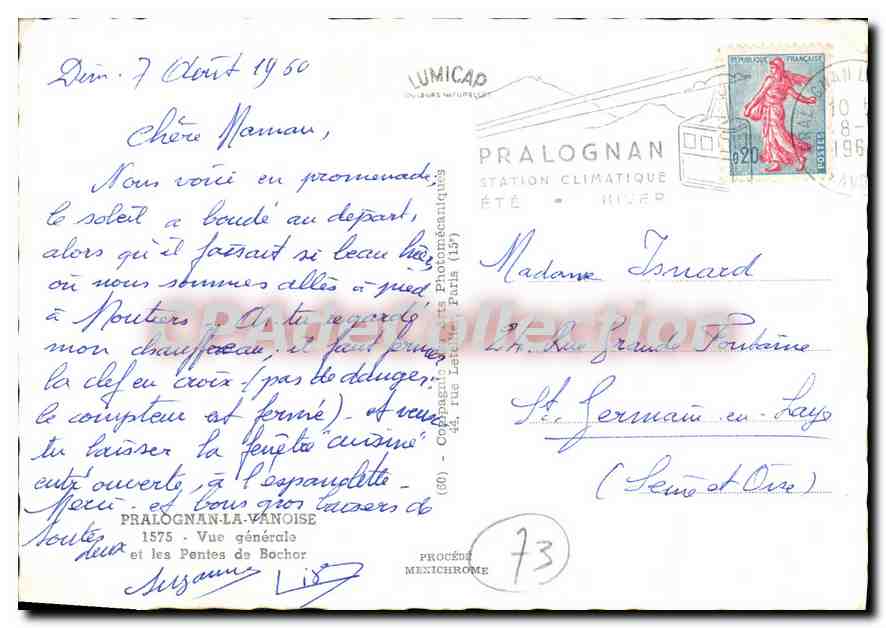 Dim. 7 Août 1960
Chère Maman,
Nous voici en promenade,
le soleil a boudé au départ,
alors qu'il faisait si beau hier,
où nous sommes allés à pied
à Moutiers. As tu regardé
mon chauffeau, il faut fermer
la clef en croix (pas de danger
le compteur est fermé) et veux
tu laisser la fenêtre "cuisine"
entr'ouverte, à l'espagnolette
Merci et bons gros baisers de
toutes
deux
Suzanne
PRALOGNAN-LA-VANOISE
1575 - Vue générale
et les Pentes de Bochor
(60) - Compagnie des Arts Photomécaniques
44, rue Letellier, Paris (15e)
LUMICAP
COULEURS NATURELLES
PRALOGNAN
STATION CLIMATIQUE
ÉTÉ - HIVER
REPUBLIQUE FRANÇAISE
0,20
POSTES
PRALOGNAN
10
8-
196
Madame Isnard
24, Rue Grande Fontaine
St Germain-en-Laye
(Seine et Oise)
PROCÉDÉ
MEXICHROME
73
CPAdeCollection